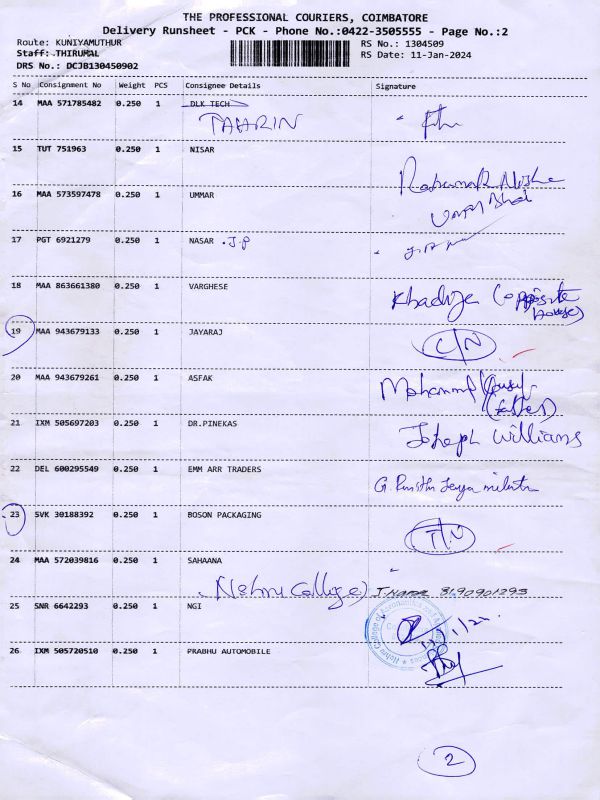 THE PROFESSIONAL COURIERS, COIMBATORE
Delivery Runsheet - PCK - Phone No.:0422-3505555 - Page No.:2
Route: KUNIYAMUTHUR RS No.: 1304509
Staff: THIRUMAL RS Date: 11-Jan-2024
DRS No.: DCJB130450902
S No Consignment No Weight PCS Consignee Details Signature
14 MAA 571785482 0.250 1 DLK TECH
TAHRIN
15 TUT 751963 0.250 1 NISAR
16 MAA 573597478 0.250 1 UMMAR
17 PGT 6921279 0.250 1 NASAR .J.P
18 MAA 863661380 0.250 1 VARGHESE
Khadija (opposite
house)
19 MAA 943679133 0.250 1 JAYARAJ
C/N
20 MAA 943679261 0.250 1 ASFAK
Mohammed
(father)
21 IXM 505697203 0.250 1 DR.PINEKAS
Joheph Williams
22 DEL 600295549 0.250 1 EMM ARR TRADERS
23 SVK 30188392 0.250 1 BOSON PACKAGING
T/N
24 MAA 572039816 0.250 1 SAHAANA
(Nehru College) 8190901293
25 SNR 6642293 0.250 1 NGI
26 IXM 505720510 0.250 1 PRABHU AUTOMOBILE
2